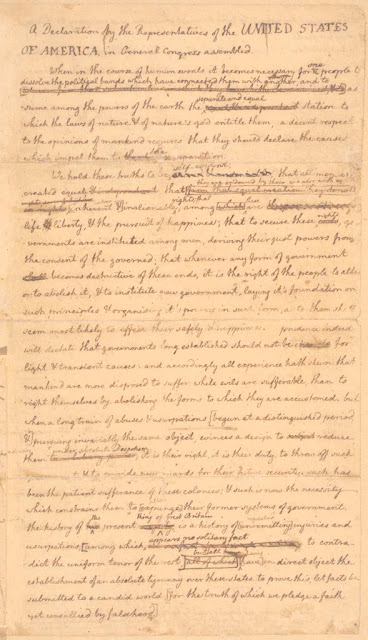 A Declaration by the Representatives of the UNITED STATES
OF AMERICA, in General Congress assembled.
When in the course of human events it becomes necessary for one people to
dissolve the political bands which have connected them with another, and to
assume among the powers of the earth the separate and equal station to
which the laws of nature & of nature's god entitle them, a decent respect
to the opinions of mankind requires that they should declare the causes
which impel them to the separation.
We hold these truths to be self-evident, that all men are
created equal, that they are endowed by their creator with
inherent & inalienable rights; that among these are
life, liberty, & the pursuit of happiness; that to secure these rights, go-
vernments are instituted among men, deriving their just powers from
the consent of the governed; that whenever any form of government
becomes destructive of these ends, it is the right of the people to alter
or to abolish it, & to institute new government, laying it's foundation on
such principles & organising it's powers in such form, as to them shall
seem most likely to effect their safety & happiness. prudence indeed
will dictate that governments long established should not be changed for
light & transient causes: and accordingly all experience hath shewn that
mankind are more disposed to suffer while evils are sufferable, than to
right themselves by abolishing the forms to which they are accustomed. but
when a long train of abuses & usurpations [begun at a distinguished period
&] pursuing invariably the same object, evinces a design to reduce
them under absolute Despotism, it is their right, it is their duty, to throw off such
& to provide new guards for their future security. such has
been the patient sufferance of these colonies; & such is now the necessity
which constrains them to expunge their former systems of government.
the history of the present King of Great Britain is a history of unremitting injuries and
usurpations, among which appears no solitary fact to contra-
dict the uniform tenor of the rest, [all of which] have in direct object the
establishment of an absolute tyranny over these states. to prove this, let facts be
submitted to a candid world [for the truth of which we pledge a faith
yet unsullied by falsehood]